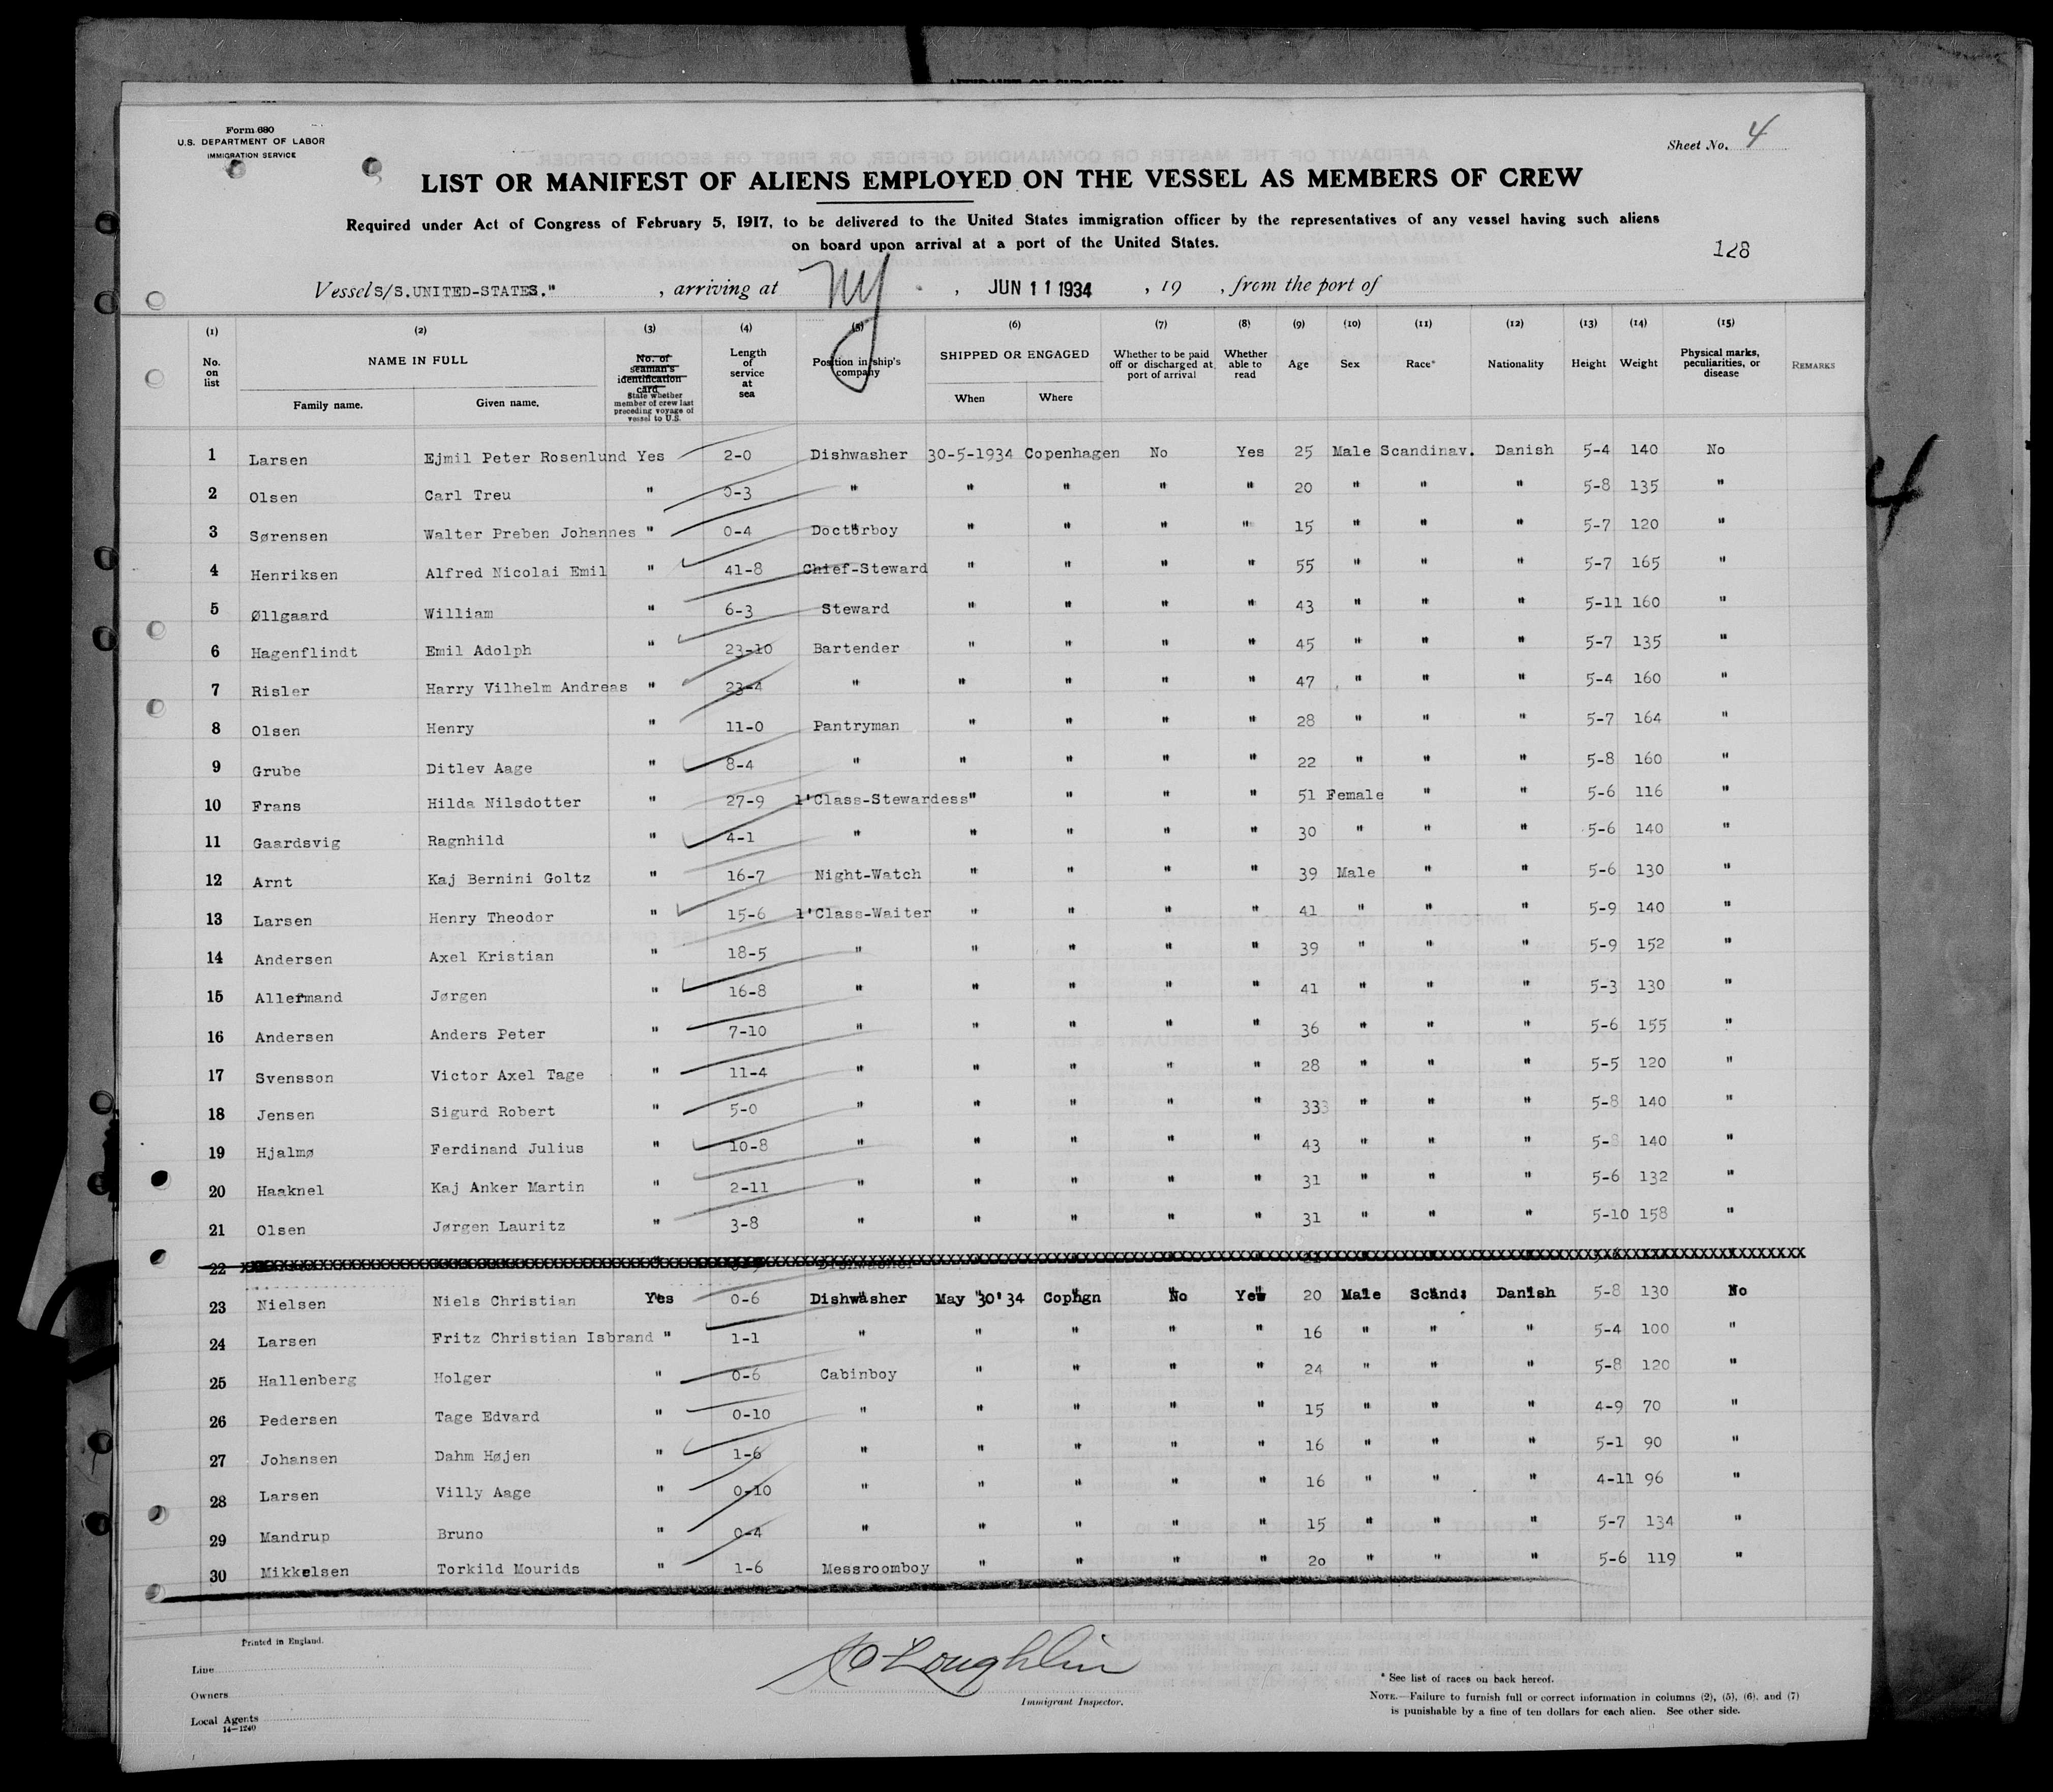 Form 680
U.S. DEPARTMENT OF LABOR
IMMIGRATION SERVICE
Sheet No. 4
LIST OR MANIFEST OF ALIENS EMPLOYED ON THE VESSEL AS MEMBERS OF CREW
Required under Act of Congress of February 5, 1917, to be delivered to the United States immigration officer by the representatives of any vessel having such aliens
on board upon arrival at a port of the United States.
128
Vessel S/S.UNITED-STATES." , arriving at NY , JUN 11 1934 , 19 , from the port of
(1) (2) (3) (4) (5) (6) (7) (8) (9) (10) (11) (12) (13) (14) (15)
No. on list NAME IN FULL Family name. Given name. No. of seaman's identification card State whether member of crew last preceding voyage of vessel to U.S. Length of service at sea Position in ship's company SHIPPED OR ENGAGED When Where Whether to be paid off or discharged at port of arrival Whether able to read Age Sex Race* Nationality Height Weight Physical marks, peculiarities, or disease REMARKS
1 Larsen Ejmil Peter Rosenlund Yes 2-0 Dishwasher 30-5-1934 Copenhagen No Yes 25 Male Scandinav. Danish 5-4 140 No
2 Olsen Carl Treu " 0-3 " " " " " 20 " " " 5-8 135 "
3 Sørensen Walter Preben Johannes " 0-4 Doctorboy " " " " 15 " " " 5-7 120 "
4 Henriksen Alfred Nicolai Emil " 41-8 Chief-Steward " " " " 55 " " " 5-7 165 "
5 Øllgaard William " 6-3 Steward " " " " 43 " " " 5-11 160 "
6 Hagenflindt Emil Adolph " 23-10 Bartender " " " " 45 " " " 5-7 135 "
7 Risler Harry Vilhelm Andreas " 23-4 " " " " " 47 " " " 5-4 160 "
8 Olsen Henry " 11-0 Pantryman " " " " 28 " " " 5-7 164 "
9 Grube Ditlev Aage " 8-4 " " " " " 22 " " " 5-8 160 "
10 Frans Hilda Nilsdotter " 27-9 1'Class-Stewardess" " " " 51 Female " " 5-6 116 "
11 Gaardsvig Ragnhild " 4-1 " " " " " 30 " " " 5-6 140 "
12 Arnt Kaj Bernini Goltz " 16-7 Night-Watch " " " " 39 Male " " 5-6 130 "
13 Larsen Henry Theodor " 15-6 1'Class-Waiter " " " " 41 " " " 5-9 140 "
14 Andersen Axel Kristian " 18-5 " " " " " 39 " " " 5-9 152 "
15 Allermand Jørgen " 16-8 " " " " " 41 " " " 5-3 130 "
16 Andersen Anders Peter " 7-10 " " " " " 36 " " " 5-6 155 "
17 Svensson Victor Axel Tage " 11-4 " " " " " 28 " " " 5-5 120 "
18 Jensen Sigurd Robert " 5-0 " " " " " 333 " " " 5-8 140 "
19 Hjalmø Ferdinand Julius " 10-8 " " " " " 43 " " " 5-8 140 "
20 Haaknel Kaj Anker Martin " 2-11 " " " " " 31 " " " 5-6 132 "
21 Olsen Jørgen Lauritz " 3-8 " " " " " 31 " " " 5-10 158 "
22
23 Nielsen Niels Christian Yes 0-6 Dishwasher May 30'34 Cophgn No Yes 20 Male Scand: Danish 5-8 130 No
24 Larsen Fritz Christian Isbrand " 1-1 " " " " " 16 " " " 5-4 100 "
25 Hallenberg Holger " 0-6 Cabinboy " " " " 24 " " " 5-8 120 "
26 Pedersen Tage Edvard " 0-10 " " " " " 15 " " " 4-9 70 "
27 Johansen Dahm Højen " 1-6 " " " " " 16 " " " 5-1 90 "
28 Larsen Villy Aage " 0-10 " " " " " 16 " " " 4-11 96 "
29 Mandrup Bruno " 0-4 " " " " " 15 " " " 5-7 134 "
30 Mikkelsen Torkild Mourids " 1-6 Messroomboy " " " " 20 " " " 5-6 119 "
4
Printed in England.
Line
Owners
Local Agents
14-1240
Loughlin
Immigrant Inspector.
* See list of races on back hereof.
NOTE.—Failure to furnish full or correct information in columns (2), (5), (6), and (7)
is punishable by a fine of ten dollars for each alien. See other side.